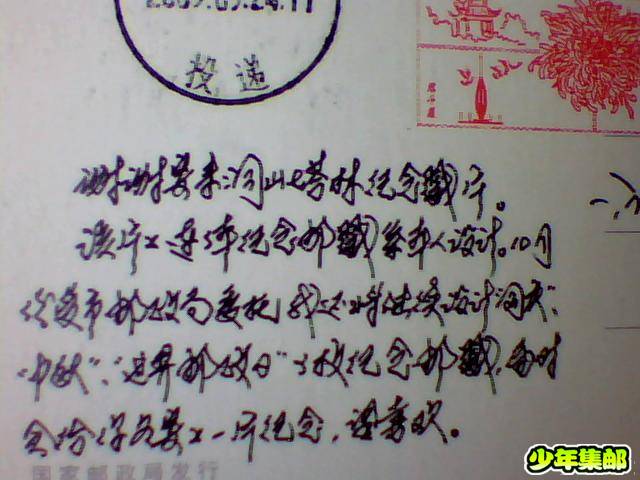 2009.09.24.11
投递
谢谢寄来洞山塔林纪念戳片。
该片及连体纪念邮戳系本人设计。10月
份受市邮政局委托,我还将继续设计“国庆”、
“中秋”、“世界邮政日”3枚纪念邮戳,届时
会给你各寄上一片纪念,望喜欢。
国家邮政局发行
少年集邮